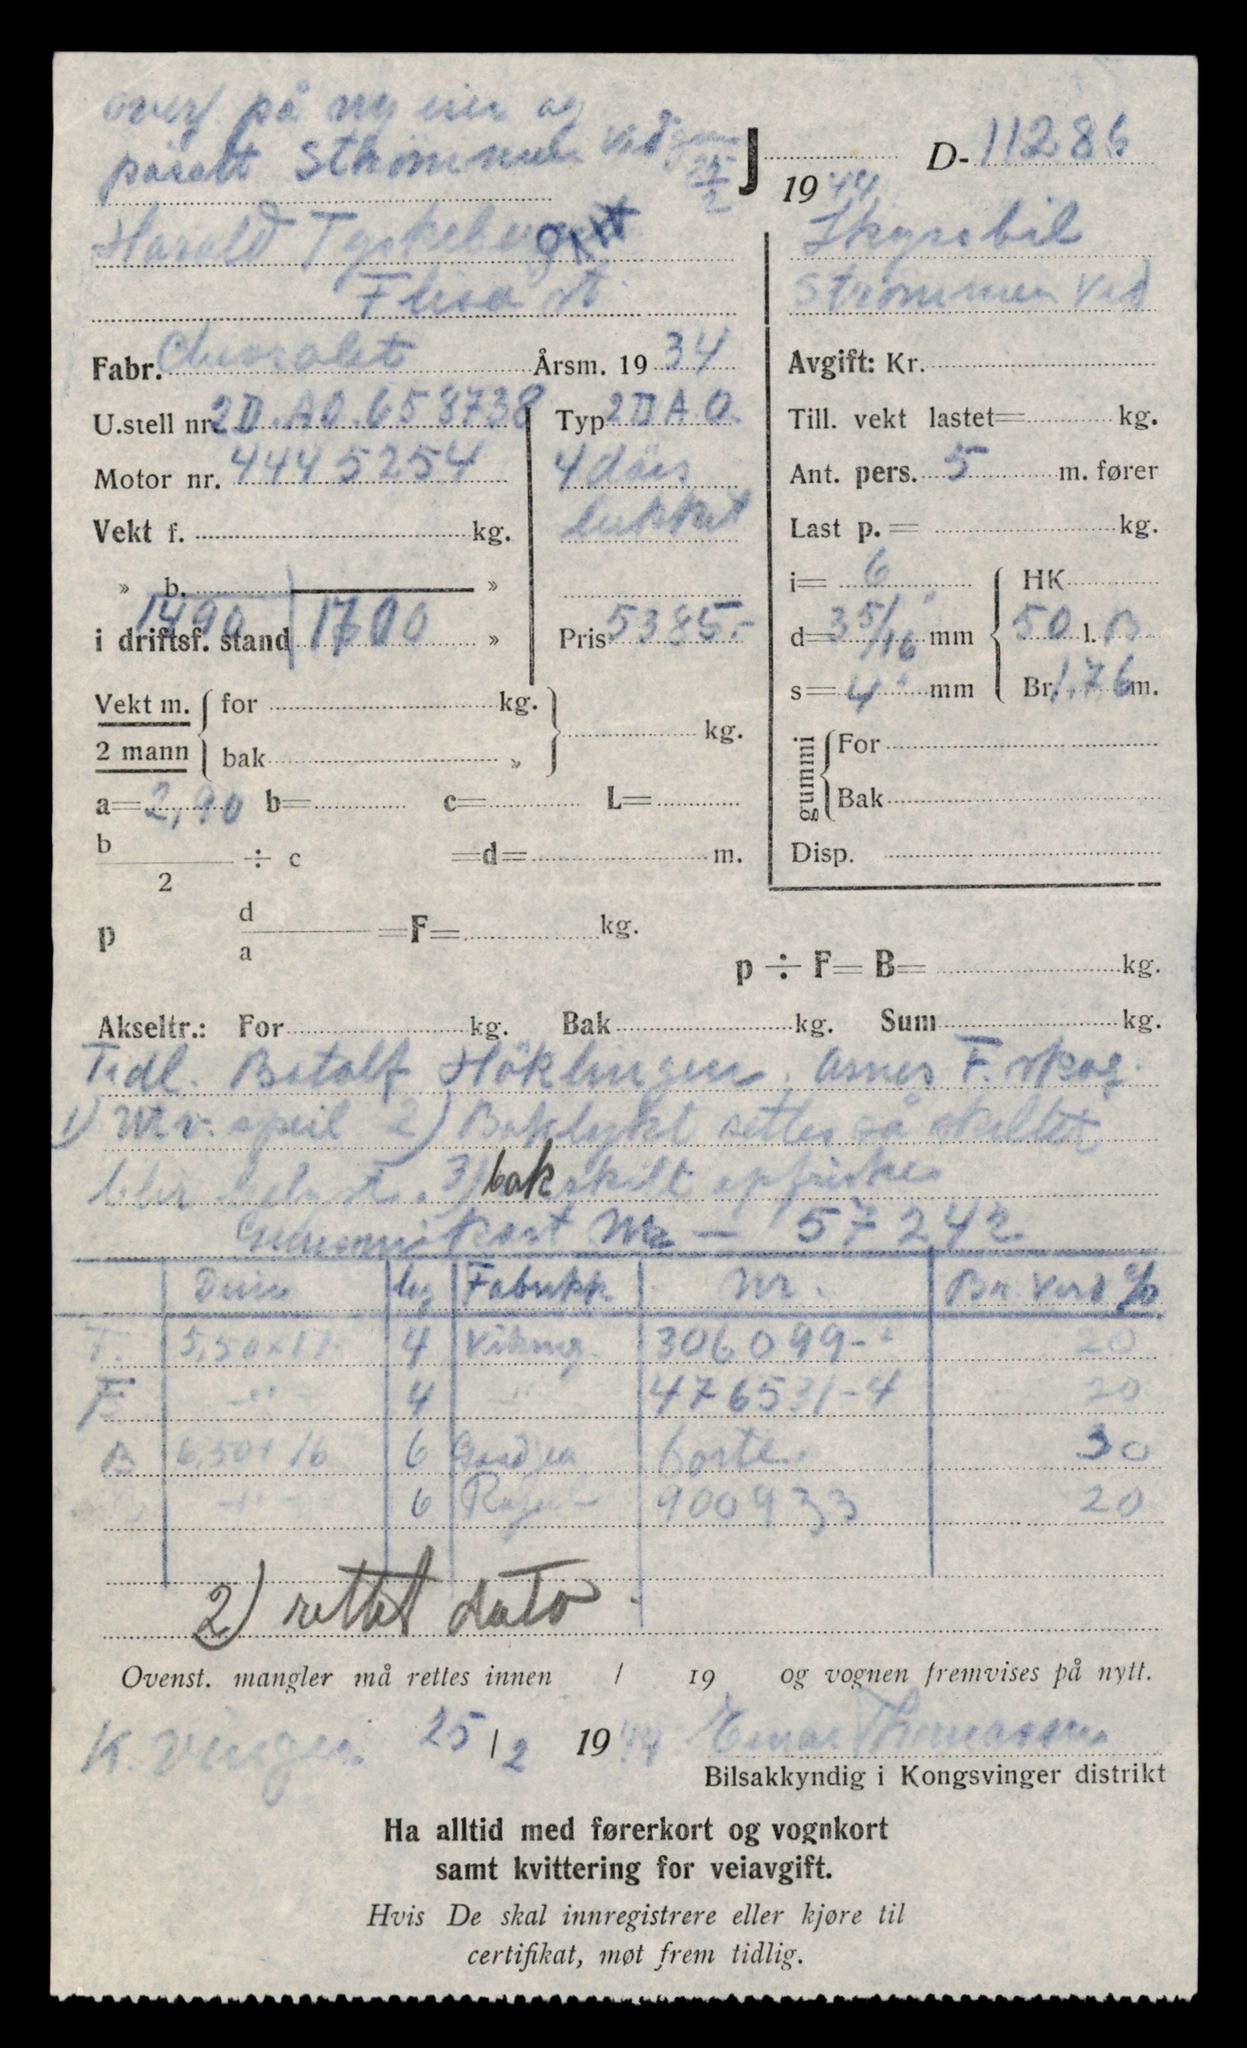 overf på ny eier og
påsatt Strømmen Vedgen 25/2
J 1944 D-11286
Harald Tyskeberget
Flisa st.
Skyssbil
Strømmen Ved
Fabr. Chevrolet Årsm. 1934
Avgift: Kr.
U.stell nr. 2D.AO.658738 Typ 2DAO.
Till. vekt lastet= kg.
Motor nr. 4445254 4 dörs
Ant. pers. 5 m. fører
Vekt f. kg. lukket
Last p.= kg.
» b. »
i= 6 HK
1490 1700
i driftsf. stand » Pris 5385.-
d= 3 5/16" mm 50 l. B.
s= 4" mm Br. 1,76 m.
Vekt m. for kg.
2 mann bak » kg.
gummi For
Bak
a= 2,90 b= c= L=
b/2 ÷ c =d= m.
Disp.
p d/a =F= kg.
p ÷ F= B= kg.
Akseltr.: For kg. Bak kg. Sum kg.
Tidl. Botolf Höklingen. Åsnes F. skog.
1) Vi.v. speil 2) Baklykt settes så skiltet
blir belyst. 3) bakskilt opfriskes
Gummikort Nr — 57242
Dim lag Fabrikk Nr. Br. Verd %
T. 5,50x17 4 Viking 306099- 20
F -"- 4 -"- 476531-4 20
B 6,50x16 6 borte. 30
-"- 6 900933 20
2) rettet dato.
Ovenst. mangler må rettes innen / 19 og vognen fremvises på nytt.
K.vinger 25/2 1944 Einar Thomassen
Bilsakkyndig i Kongsvinger distrikt
Ha alltid med førerkort og vognkort
samt kvittering for veiavgift.
Hvis De skal innregistrere eller kjøre til
certifikat, møt frem tidlig.